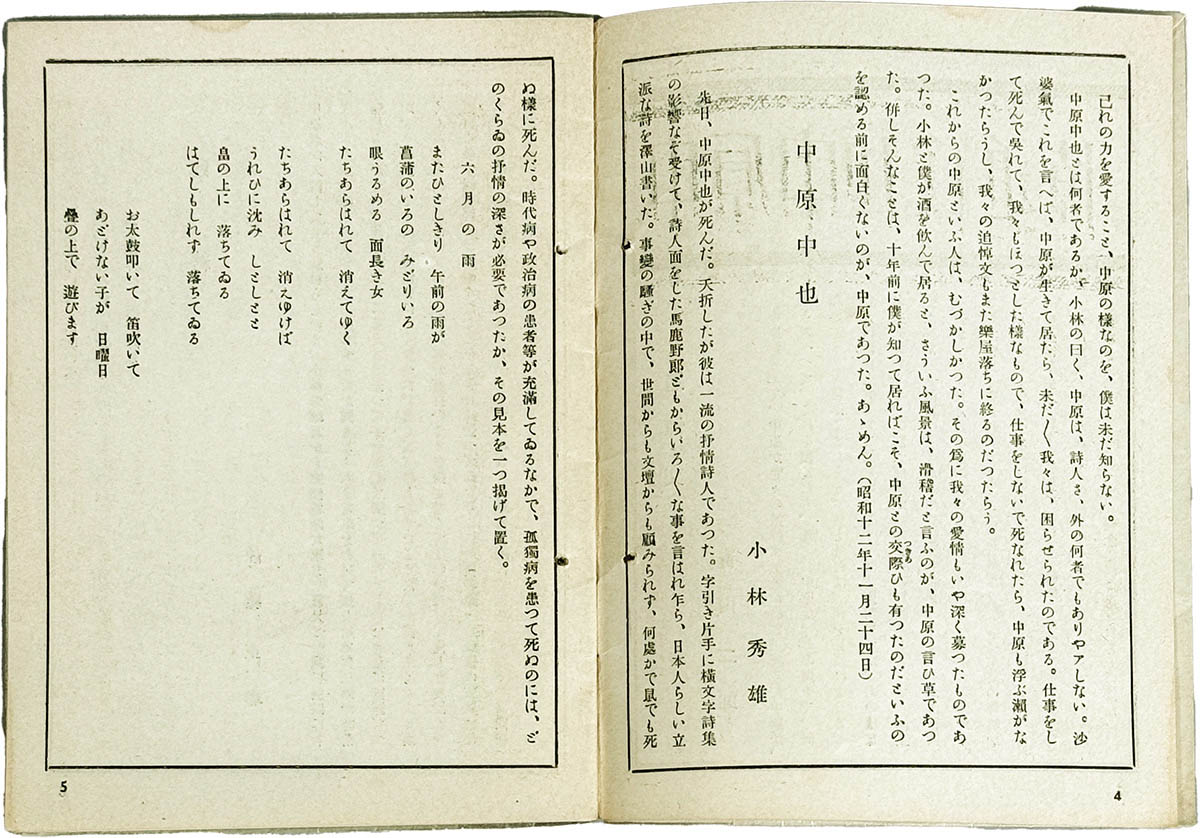 己れの力を愛すること、中原の樣なのを、僕は未だ知らない。
中原中也とは何者であるか。小林の曰く、中原は、詩人さ、外の何者でもありやアしない。沙
婆氣でこれを言へば、中原が生きて居たら、未だ〳〵我々は、困らせられたのである。仕事をし
て死んで吳れて、我々もほつとした樣なもので、仕事をしないで死なれたら、中原も浮ぶ瀨がな
かつたらうし、我々の追悼文もまた樂屋落ちに終るのだつたらう。
これからの中原といふ人は、むづかしかつた。その爲に我々の愛情もいや深く募つたものであ
つた。小林と僕が酒を飮んで居ると、さういふ風景は、滑稽だと言ふのが、中原の言ひ草であつ
た。併しそんなことは、十年前に僕が知つて居ればこそ、中原との交際ひも有つたのだといふの
つきあ
を認める前に面白くないのが、中原であつた。あゝめん。(昭和十二年十一月二十四日)
中原中也
小林秀雄
先日、中原中也が死んだ。夭折したが彼は一流の抒情詩人であつた。字引き片手に橫文字詩集
の影響なぞ受けて、詩人面をした馬鹿野郞どもからいろ〳〵な事を言はれ乍ら、日本人らしい立
派な詩を澤山書いた。事變の騷ぎの中で、世間からも文壇からも顧みられず、何處かで鼠でも死
4
ぬ樣に死んだ。時代病や政治病の患者等が充滿してゐるなかで、孤獨病を患つて死ぬのには、ど
のくらゐの抒情の深さが必要であつたか、その見本を一つ揭げて置く。
六月の雨
またひとしきり 午前の雨が
菖蒲のいろの みどりいろ
眼うるめる 面長き女
たちあらはれて 消えてゆく
たちあらはれて 消えゆけば
うれひに沈み しとしとと
畠の上に 落ちてゐる
はてしもしれず 落ちてゐる
お太鼓叩いて 笛吹いて
あどけない子が 日曜日
疊の上で 遊びます
5